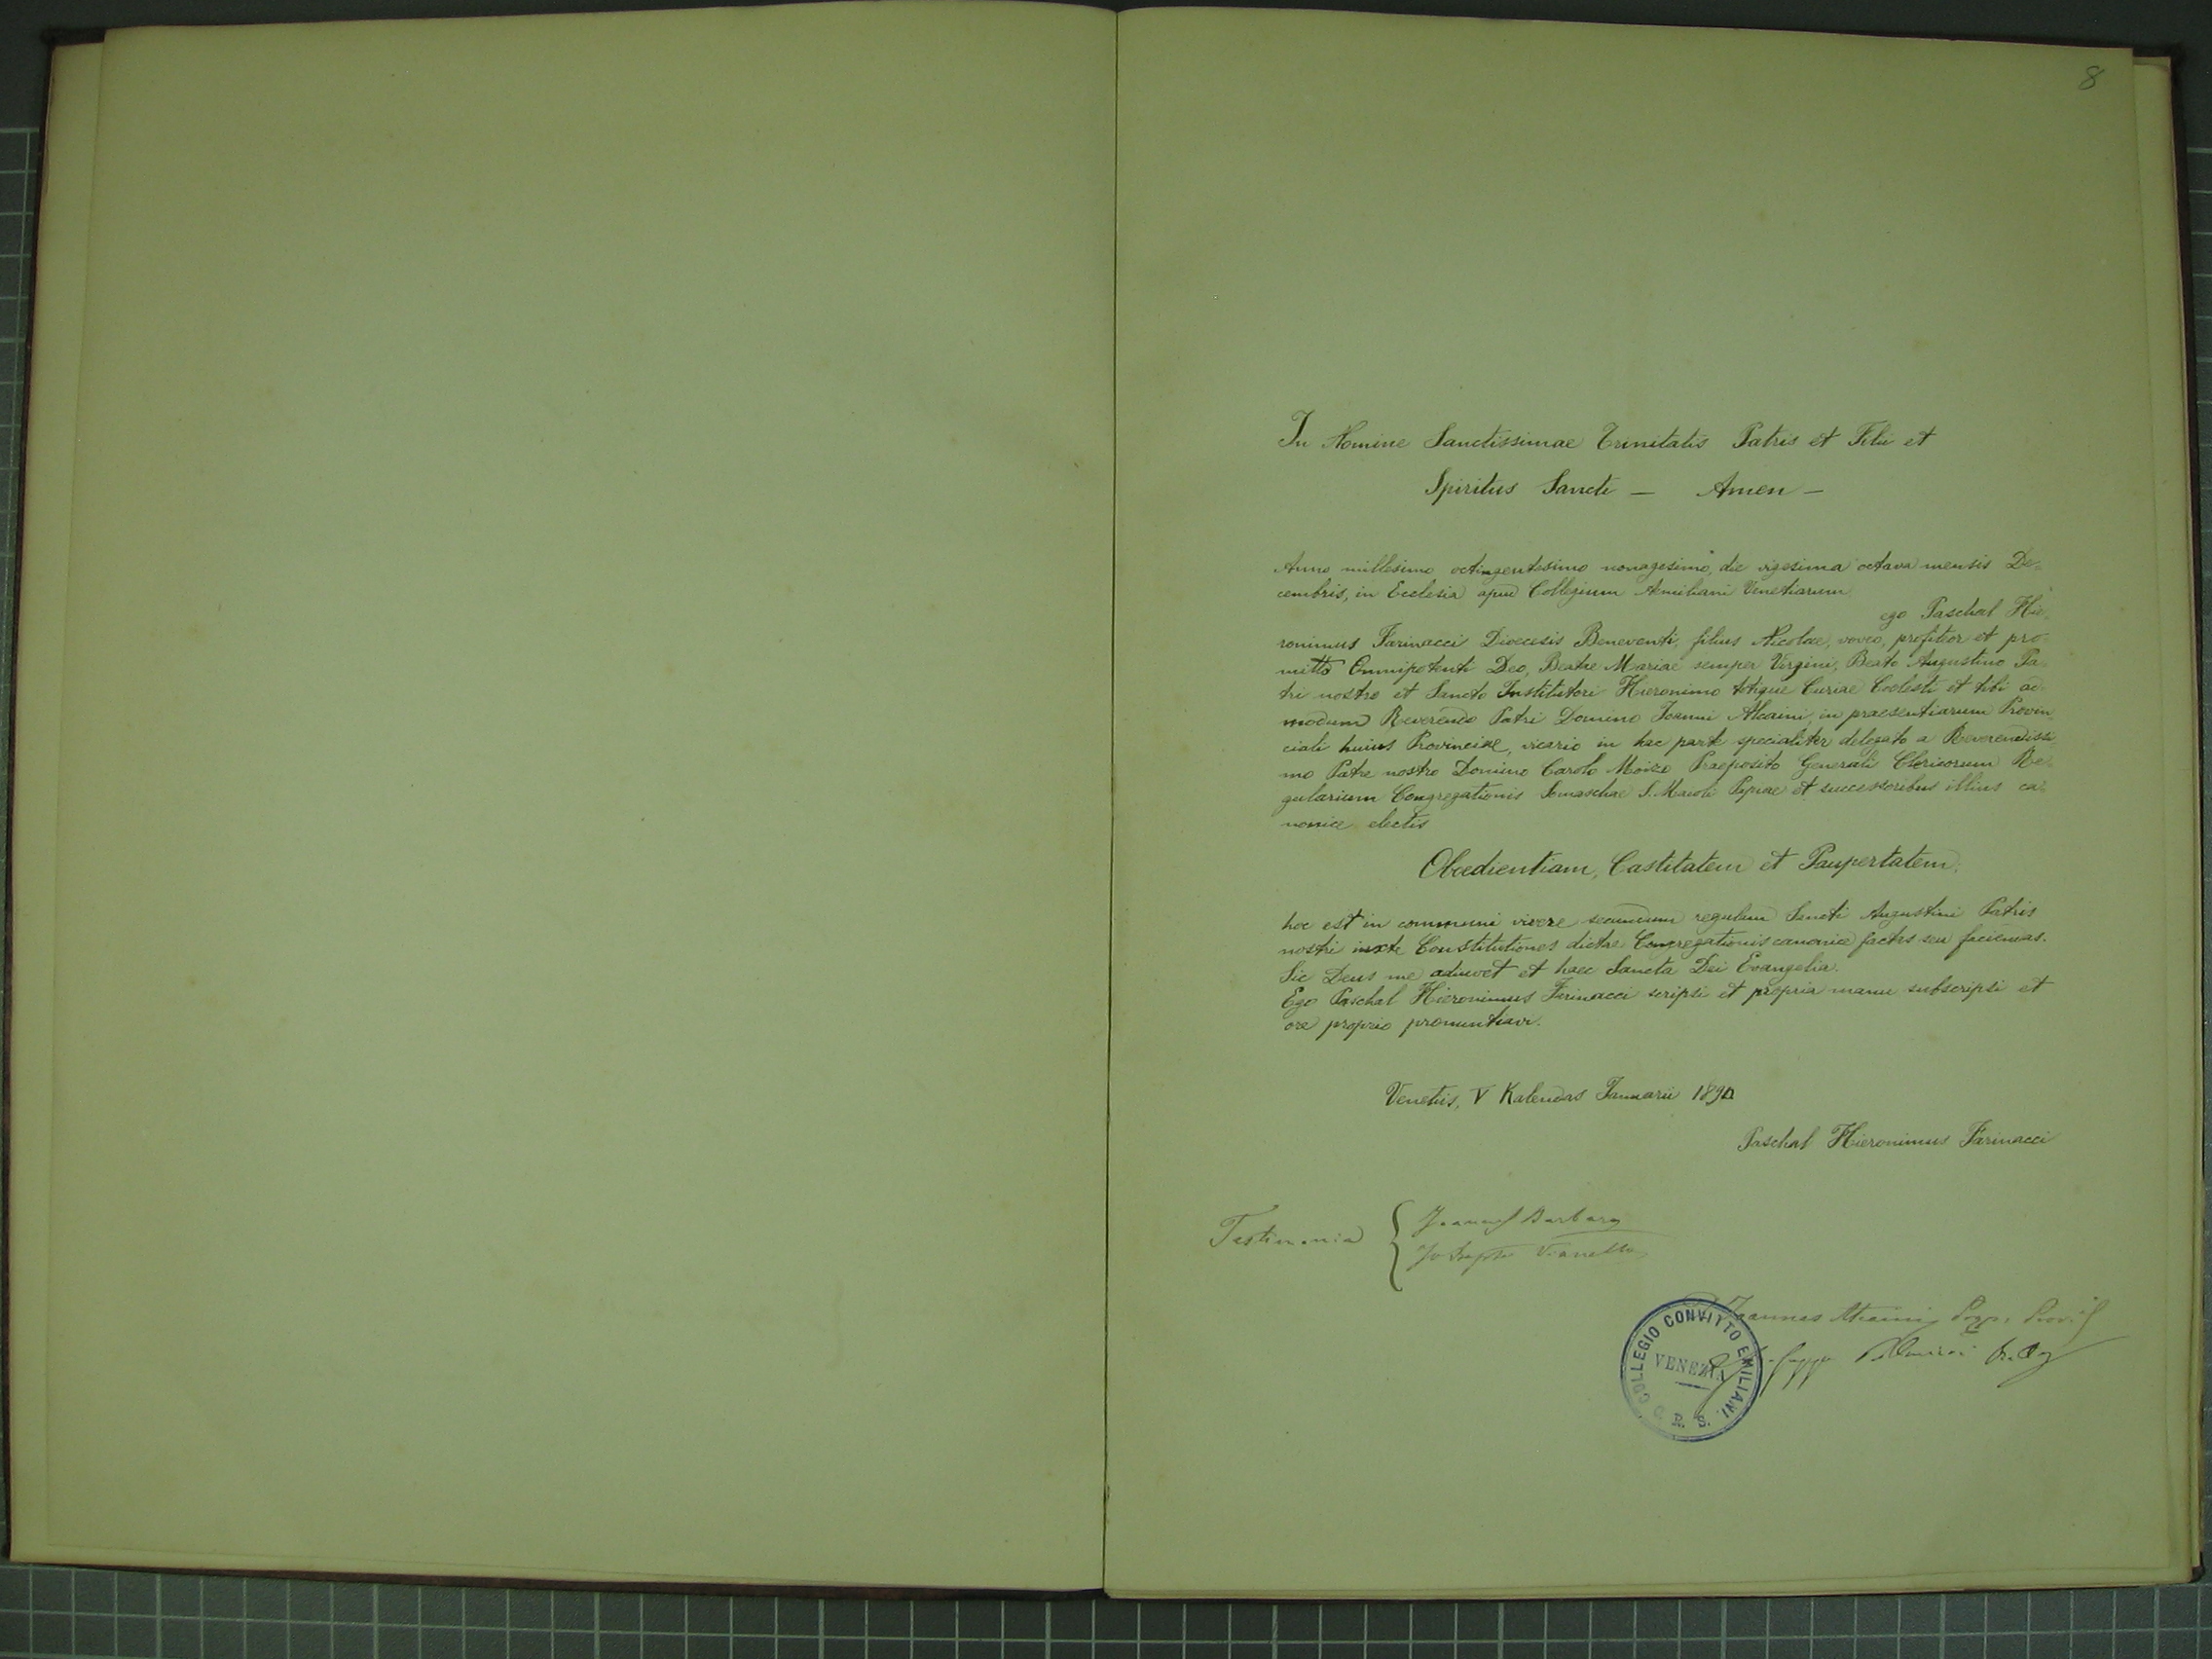 8
In Nomine Sanctissimae Trinitatis Patris et Filii et
Spiritus Sancti — Amen —
Anno millesimo octingentesimo nonagesimo, die vigesima octava mensis De-
cembris, in Ecclesia apud Collegium Aemiliani Venetiarum
ego Paschal Hie-
ronimus Farinacci Dioecesis Beneventi, filius Nicolae, voveo, profiteor et pro-
mitto Omnipotenti Deo, Beatae Mariae semper Virgini, Beato Augustino Pa-
tri nostro et Sancto Institutori Hieronimo totique Curiae Coelesti et tibi ad-
modum Reverendo Patri Domino Ioanni Alcaini, in praesentiarum Provin-
ciali huius Provinciae, vicario in hac parte specialiter delegato a Reverendissi-
mo Patre nostro Domino Carolo Moizo Praeposito Generali Clericorum Re-
gularium Congregationis Somaschae S. Maioli Papiae et successoribus illius ca-
nonice electis
Oboedientiam, Castitatem et Paupertatem,
hoc est in communi vivere secundum regulam Sancti Augustini Patris
nostri iuxta Constitutiones dictae Congregationis canonice factas seu faciendas.
Sic Deus me adiuvet et haec Sancta Dei Evangelia.
Ego Paschal Hieronimus Farinacci scripsi et propria manu subscripsi et
ore proprio pronuntiavi.
Venetiis, V Kalendas Ianuarii 1890
Paschal Hieronimus Farinacci
Testimonia
Joannes Barbaro
Joseph Vianello
Joannes Alcaini Prep. Prov.
COLLEGIO CONVITTO EMILIANI
VENEZIA
C. R. S.